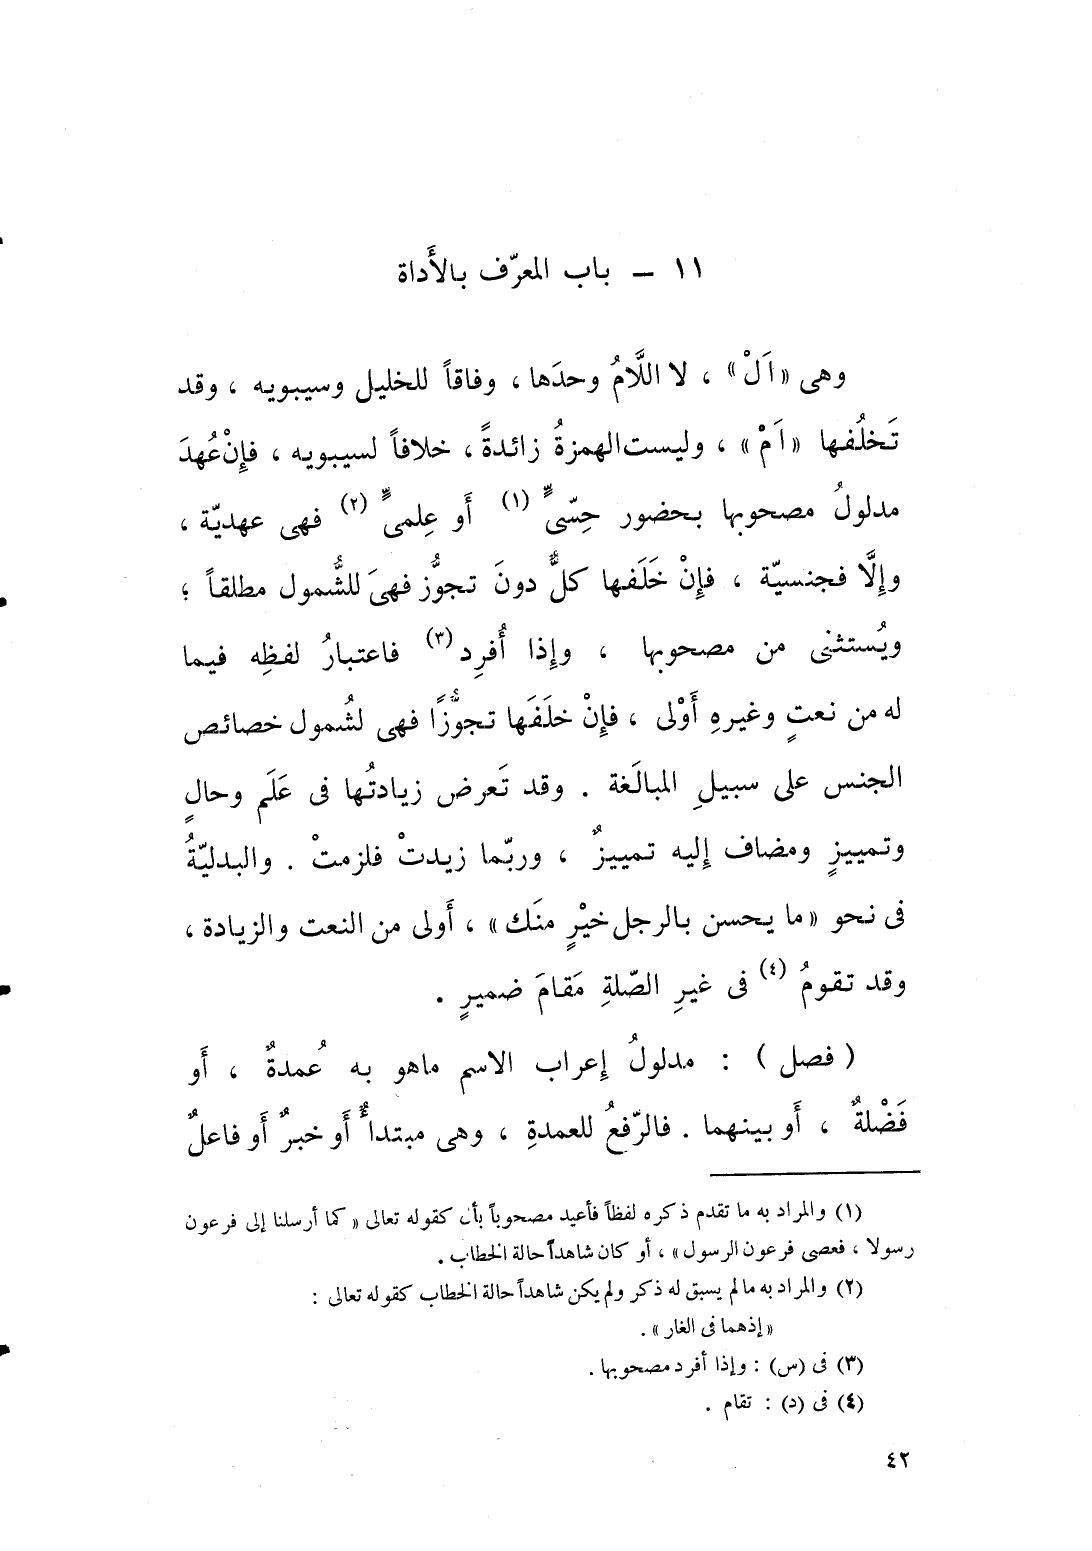 ١١ – باب المعرّف بالأَداة
وهى «اَلْ» ، لا اللَّامُ وحدَها ، وفاقاً للخليل وسيبويه ، وقد
تَخلُفها «اَمْ» ، وليست الهمزةُ زائدةً ، خلافاً لسيبويه ، فإِنْ عُهدَ
مدلولُ مصحوبها بحضور حِسّىٍّ (١) أَو عِلمىٍّ (٢) فهى عهديّة ،
وإِلَّا فجنسيّة ، فإِنْ خَلَفها كلٌّ دونَ تجوُّز فهىَ للشُّمول مطلقاً ؛
ويُستثنى من مصحوبها ، وإِذا أُفرِد (٣) فاعتبارُ لفظِه فيما
له من نعتٍ وغيرهِ أَوْلى ، فإِنْ خلَفَها تجوُّزًا فهى لشُمول خصائص
الجنس على سبيلِ المبالَغة . وقد تَعرض زيادتُها فى عَلَم وحالٍ
وتمييزٍ ومضاف إِليه تمييزٌ ، وربّما زيدتْ فلزمتْ . والبدليّةُ
فى نحو «ما يحسن بالرجل خيْرٍ منَك» ، أَولى من النعت والزيادة ،
وقد تقومُ (٤) فى غيرِ الصّلةِ مَقامَ ضميرٍ .
( فصل ) : مدلولُ إِعراب الاسم ماهو به عُمدةٌ ، أَو
فَضْلةٌ ، أَو بينهما . فالرّفعُ للعمدةِ ، وهى مبتدأٌ أَو خبرٌ أَو فاعلٌ
(١) والمراد به ما تقدم ذكره لفظاً فأعيد مصحوباً بأل كقوله تعالى « كما أرسلنا إلى فرعون
رسولا ، فعصى فرعون الرسول » ، أو كان شاهداً حالة الخطاب .
(٢) والمراد به مالم يسبق له ذكر ولم يكن شاهداً حالة الخطاب كقوله تعالى :
« إذهما فى الغار » .
(٣) فى (س) : وإذا أفرد مصحوبها .
(٤) فى (د) : تقام .
٤٢